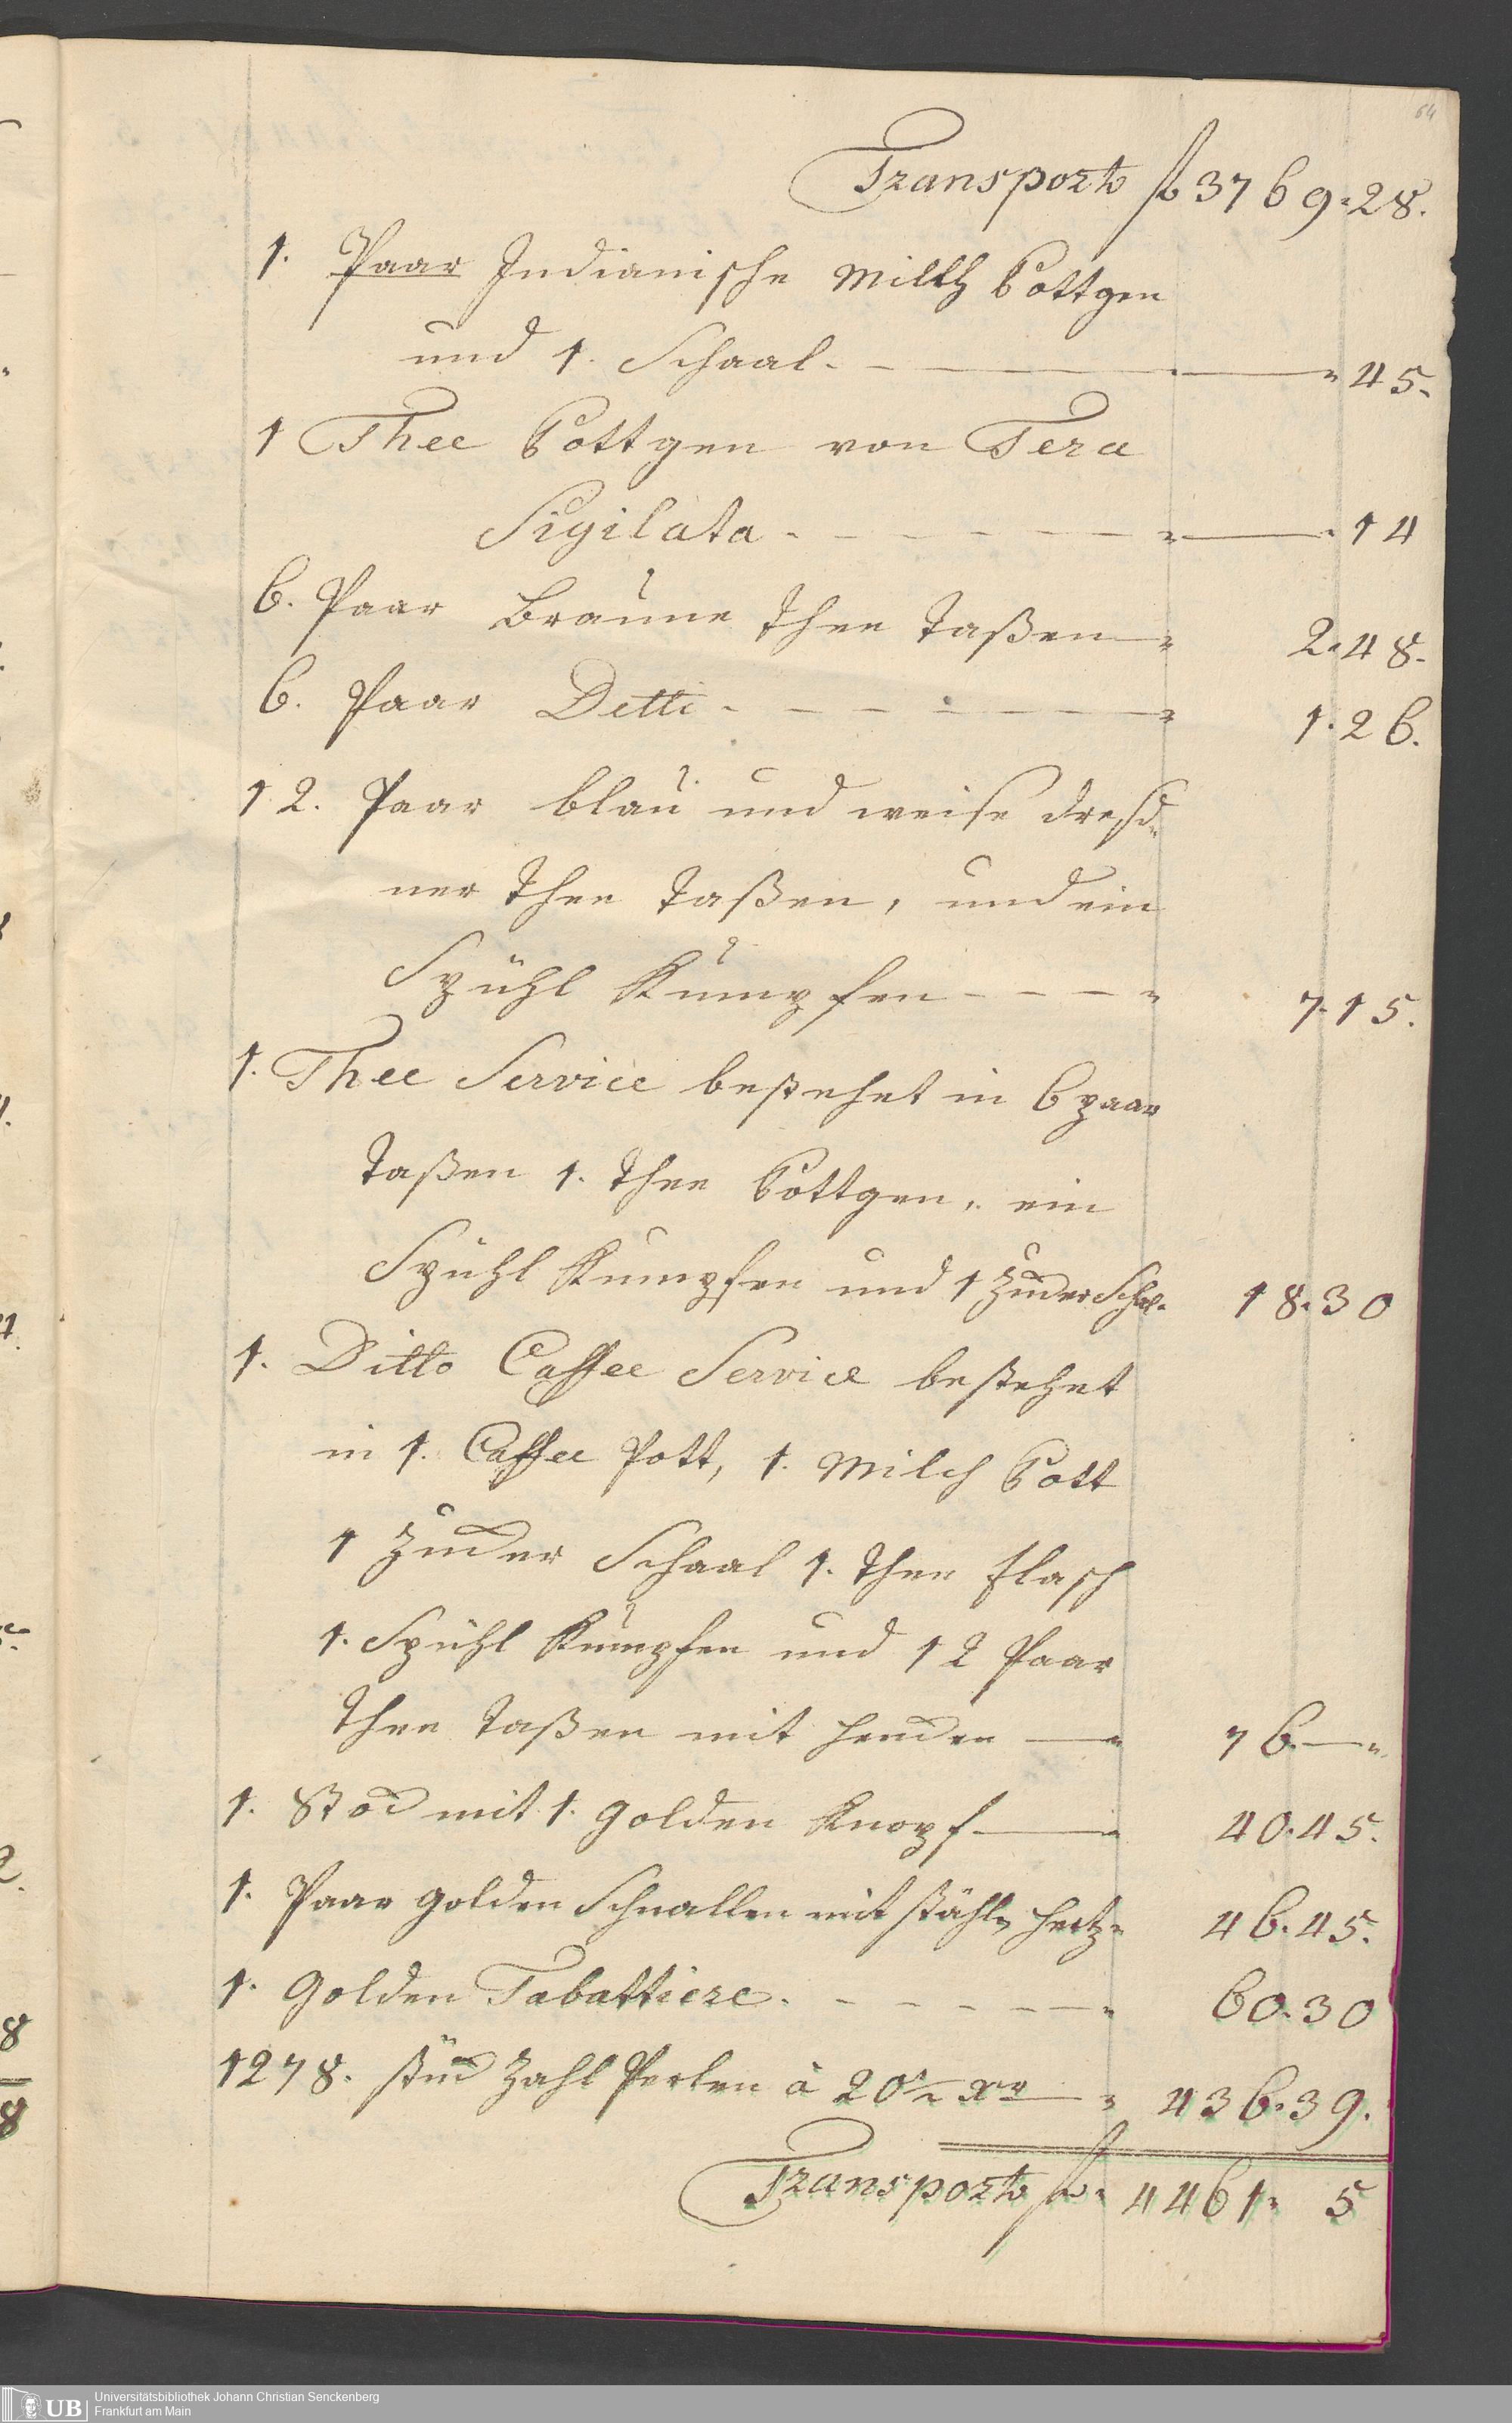 64
Transport fl 3769.28.
1. Paar Indianische Milch Pottgen
und 1. Schaal. 45.
1 Thee Pottgen von Tera
Sigilata. 14
6. Paar Braune Thee Taßen 2.48.
6. Paar Detti 1.26.
12. Paar blau und weise dresd-
ner Thee Taßen, und ein
Spühl Kumpfen 7.15.
1. Thee Service bestehet in 6 paar
Taßen 1. Thee Pottgen, ein
Spühl Kumpfen und 1 Zucker Schal. 18.30
1. Ditto Caffee Service bestehet
in 1. Caffee Pott, 1. Milch Pott
1 Zucker Schaal 1. Thee flasch
1. Spühl Kumpfen und 12 Paar
Thee Taßen mit Hencken 76.—
1. Stock mit 1. golden Knopf 40.45.
1. Paar golden Schnallen mit stähln Hertz 46.45.
1. Golden Tabattiere. 60.30
1278. stück Zahl Perlen à 20½ xr 436.39.
Transport fl. 4461. 5
8
8
UB Universitätsbibliothek Johann Christian Senckenberg
Frankfurt am Main